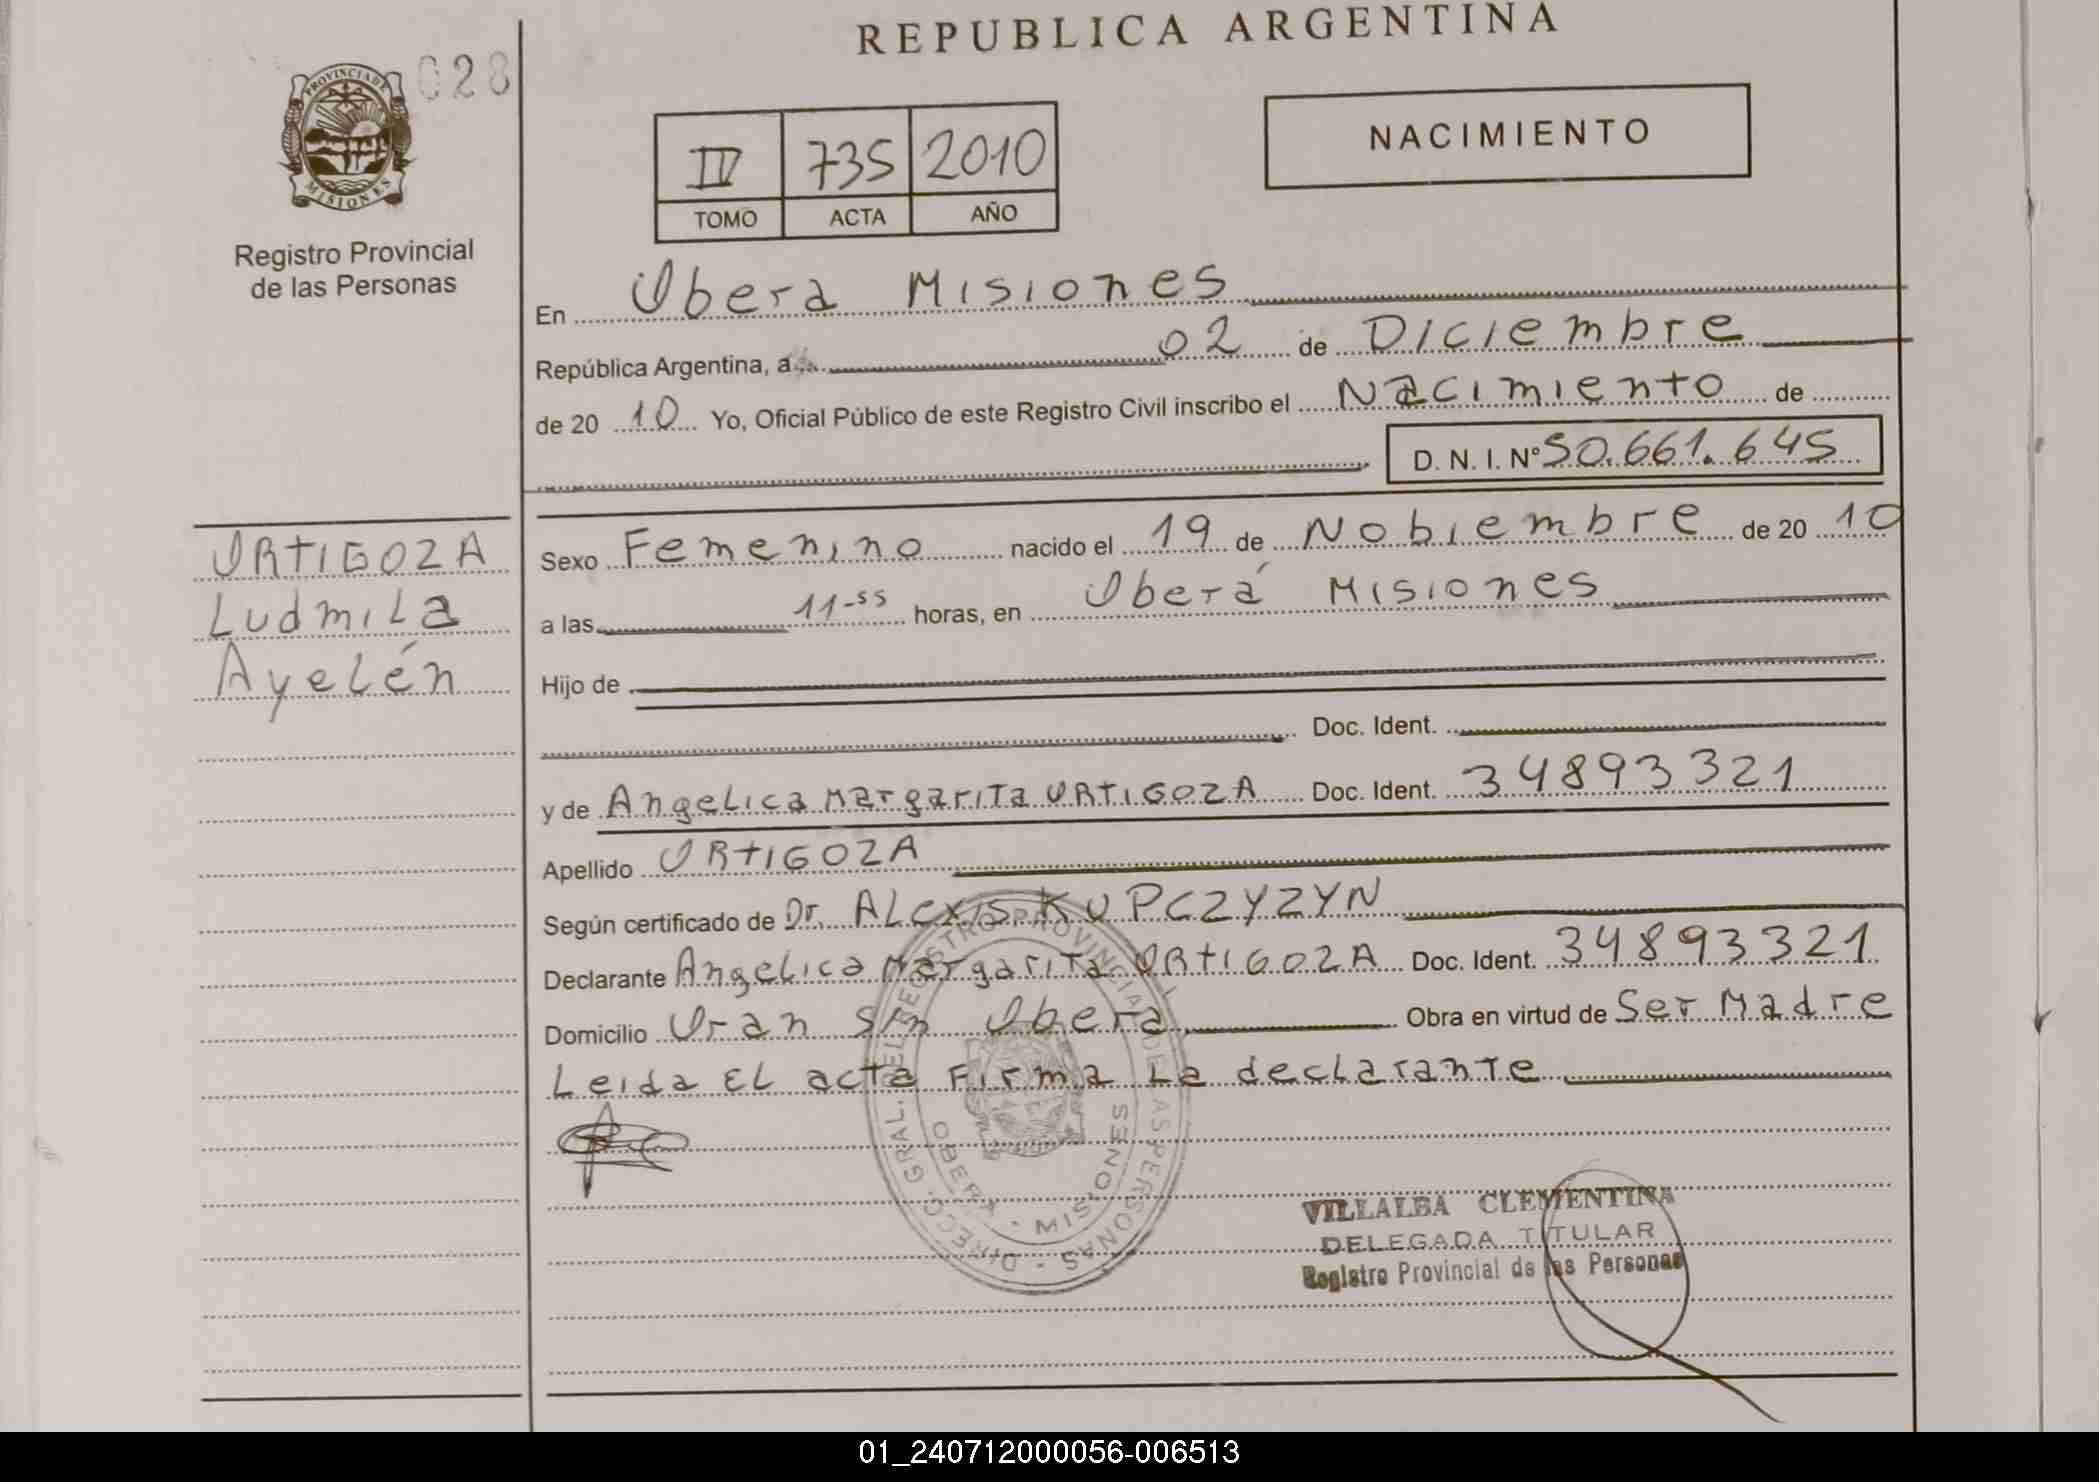 REPUBLICA ARGENTINA
028
PROVINCIA DE MISIONES
Registro Provincial
de las Personas
NACIMIENTO
IV 735 2010
TOMO ACTA AÑO
En Obera Misiones
República Argentina, a 02 de Diciembre
de 2010 Yo, Oficial Público de este Registro Civil inscribo el Nacimiento de
D. N. I. N° 50.661.645
ORTIGOZA
Ludmila
Ayelén
Sexo Femenino nacido el 19 de Nobiembre de 2010
a las 11-55 horas, en Oberá Misiones
Hijo de
Doc. Ident.
y de Angelica Margarita ORTIGOZA Doc. Ident. 34893321
Apellido ORTIGOZA
Según certificado de Dr. ALexis KUPCZYZYN
Declarante Angelica Margarita ORTIGOZA Doc. Ident. 34893321
Domicilio Oran S/n Obera Obra en virtud de Ser Madre
Leida EL acta Firma La declarante
DIRECC. GRAL. DEL REGISTRO PROVINCIAL DE LAS PERSONAS
OBERA - MISIONES
VILLALBA CLEMENTINA
DELEGADA TITULAR
Registro Provincial de las Personas
01_240712000056-006513